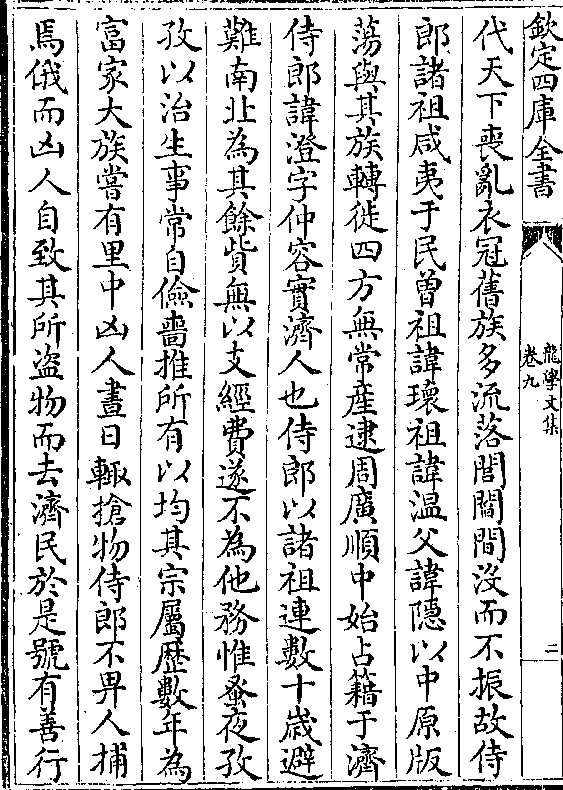 欽定四庫全書
龍學文集
卷九
二
代天下喪亂衣冠舊族多流落閭閻間没而不振故侍
郎諸祖咸夷于民曾祖諱瓌祖諱温父諱隱以中原版
蕩與其族轉徙四方無常產逮周廣順中始占籍于濟
侍郎諱澄字仲容實濟人也侍郎以諸祖連數十歳避
難南北為其餘貲無以支經費遂不為他務惟蚤夜孜
孜以治生事常自儉嗇推所有以均其宗屬歴數年為
富家大族嘗有里中凶人晝日輙搶物侍郎不畀人捕
焉俄而凶人自致其所盗物而去濟民於是號有善行